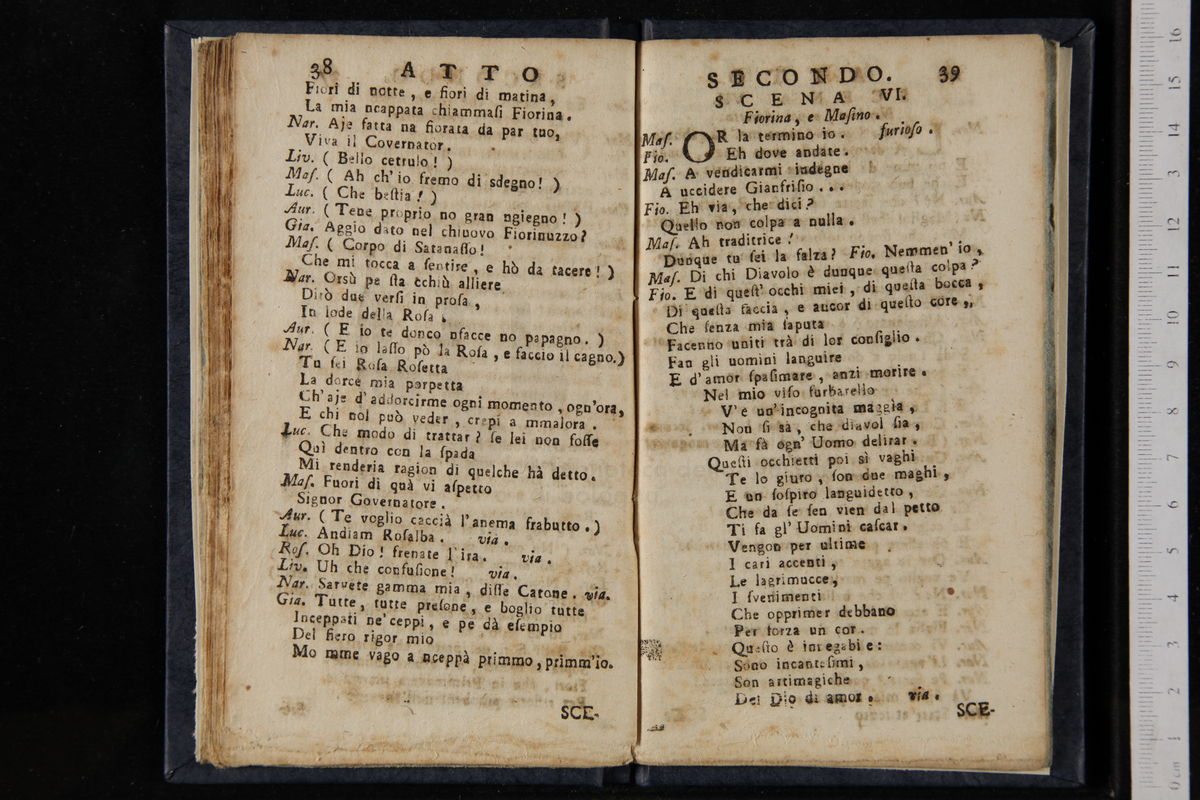 38 ATTO
Fiori di notte, e fiori di matina,
La mia ncappata chiammaſi Fiorina.
Nar. Aje fatta na fiorata da par tuo,
Viva il Covernator.
Liv. ( Bello cetrulo! )
Maſ. ( Ah ch'io fremo di sdegno! )
Luc. ( Che beſtia! )
Aur. ( Tene proprio no gran ngiegno! )
Gia. Aggio dato nel chiuovo Fiorinuzzo?
Maſ. ( Corpo di Satanaſſo!
Che mi tocca a ſentire, e hò da tacere! )
Nar. Orsù pe ſta cchiù alliere
Dirò due verſi in proſa,
In lode della Roſa.
Aur. ( E io te donco nfacce no papagno. )
Nar. ( E io laſſo pò la Roſa, e faccio il cagno.)
Tu ſei Roſa Roſetta
La dorce mia porpetta
Ch'aje d'addorcirme ogni momento, ogn'ora,
E chi nol può veder, crepi a mmalora.
Luc. Che modo di trattar? ſe lei non foſſe
Quì dentro con la ſpada
Mi renderia ragion di quelche hà detto.
Maſ. Fuori di quà vi aſpetto
Signor Governatore.
Aur. ( Te voglio caccià l'anema frabutto. )
Luc. Andiam Roſalba. via.
Roſ. Oh Dio! frenate l'ira. via.
Liv. Uh che confuſione! via.
Nar. Sarvete gamma mia, diſſe Catone. via.
Gia. Tutte, tutte preſone, e boglio tutte
Inceppati ne'ceppi, e pe dà eſempio
Del fiero rigor mio
Mo mme vago a nceppà primmo, primm'io.
SCE-
SECONDO. 39
SCENA VI.
Fiorina, e Maſino.
Maſ. OR la termino io. furioſo.
Fio. Eh dove andate.
Maſ. A vendicarmi indegne
A uccidere Gianfriſio...
Fio. Eh via, che dici?
Quello non colpa a nulla.
Maſ. Ah traditrice!
Dunque tu ſei la falza? Fio. Nemmen'io,
Maſ. Di chi Diavolo è dunque queſta colpa?
Fio. E di queſt'occhi miei, di queſta bocca,
Di queſta faccia, e ancor di queſto core,
Che ſenza mia ſaputa
Facenno uniti trà di lor conſiglio.
Fan gli uomini languire
E d'amor ſpaſimare, anzi morire.
Nel mio viſo furbarello
V'è un'incognita maggìa,
Non ſi sà, che diavol ſia,
Ma fà ogn'Uomo delirar.
Queſti occhietti poi sì vaghi
Te lo giuro, ſon due maghi,
E un ſoſpiro languidetto,
Che da ſe ſen vien dal petto
Ti fa gl'Uomini caſcar.
Vengon per ultime
I cari accenti,
Le lagrimucce,
I ſvenimenti
Che opprimer debbano
Per forza un cor.
Queſto è innegabile:
Sono incanteſimi,
Son artimagiche
Del Dio di amor. via.
SCE-